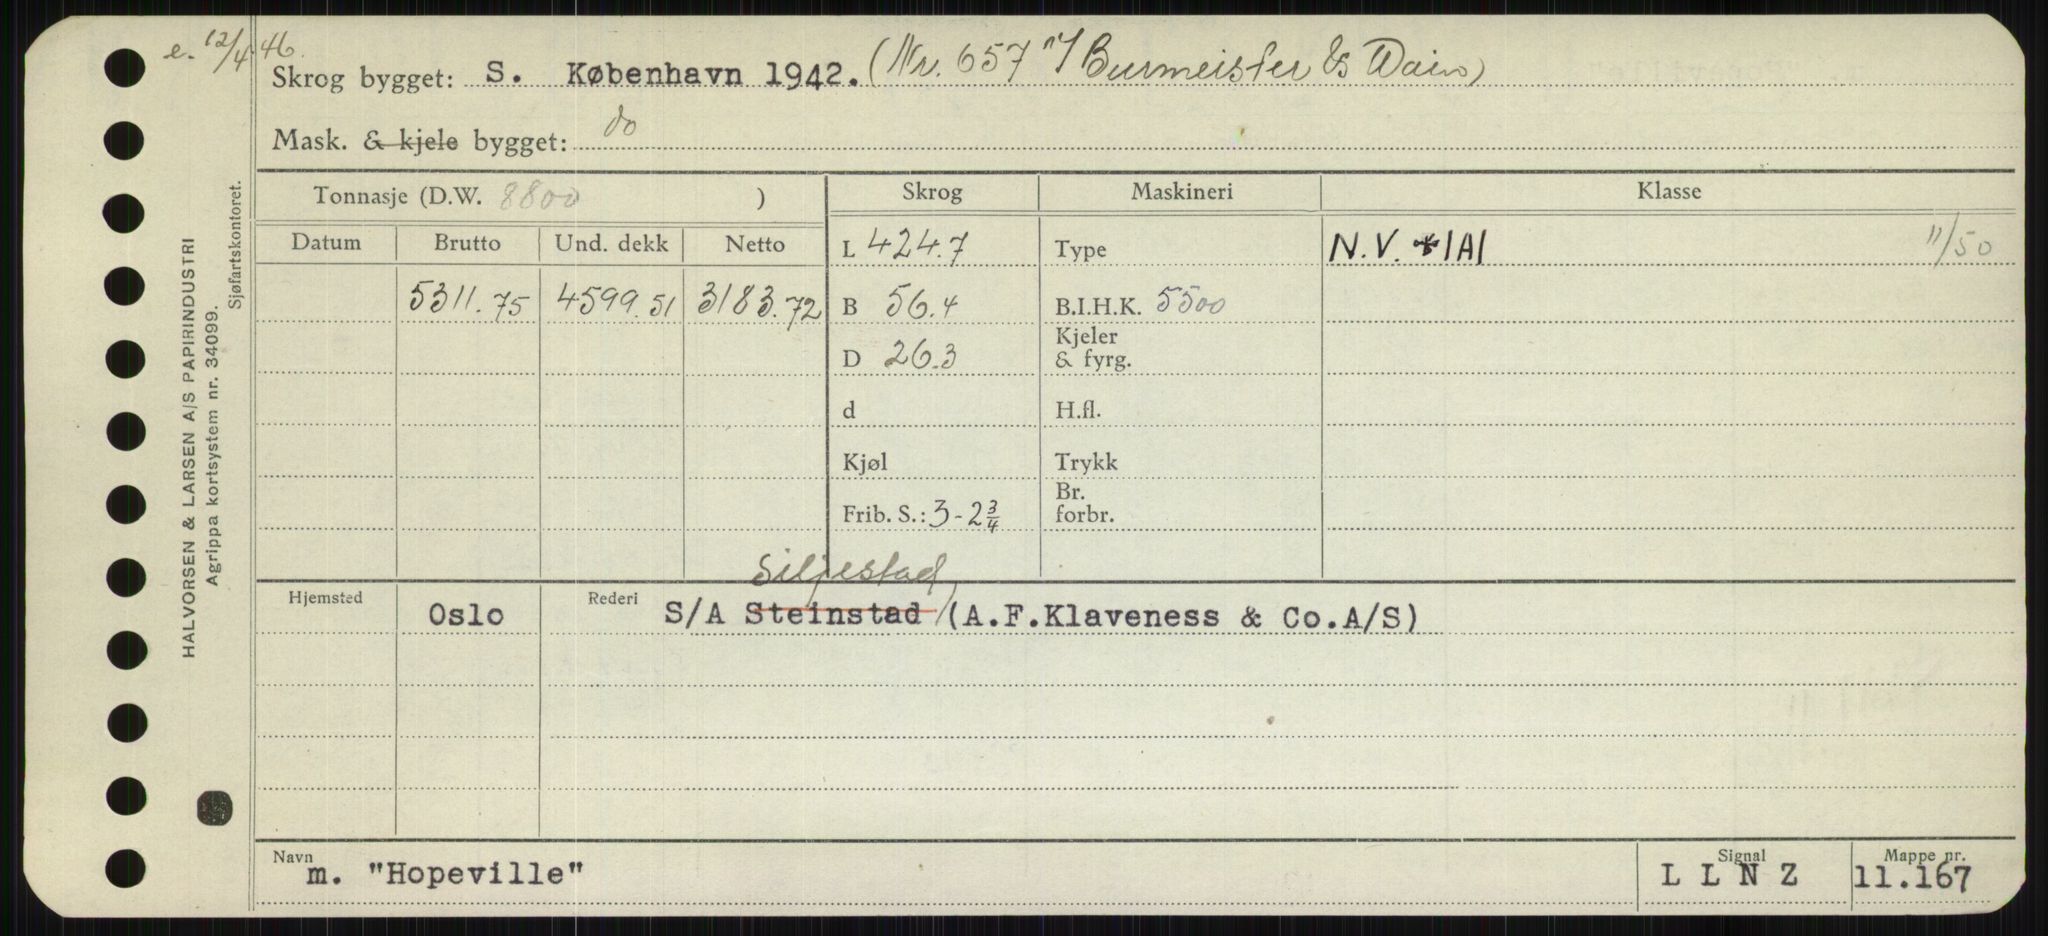 e. 12/4 46.
Skrog bygget: S. København 1942. (Nr. 657 A/S Burmeister & Wain)
Mask. & kjele bygget: do
Tonnasje (D.W. 8800 )
Skrog Maskineri Klasse
Datum Brutto Und. dekk Netto
L 424.7 Type N.V. *1A1 11/50
5311.75 4599.51 3183.72 B 56.4 B.I.H.K. 5500
D 26.3 Kjeler & fyrg.
d H.fl.
Kjøl Trykk
Frib. S.: 3-2 3/4 Br. forbr.
Siljestad
Hjemsted Oslo Rederi S/A Steinstad (A.F.Klaveness & Co.A/S)
Navn m. "Hopeville" Signal L L N Z Mappe nr. 11.167
HALVORSEN & LARSEN A/S PAPIRINDUSTRI
Agrippa kortsystem nr. 34099.
Sjøfartskontoret.